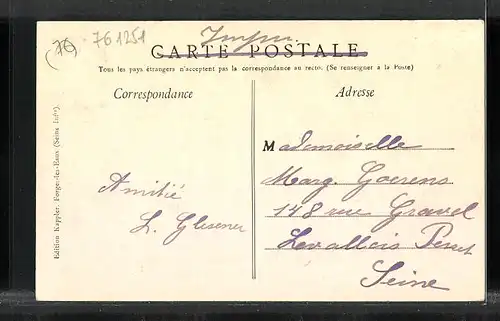 76
761251
Imprimé
CARTE POSTALE
Tous les pays étrangers n'acceptent pas la correspondance au recto. (Se renseigner à la Poste)
Correspondance
Adresse
Edition Kappler, Forges-les-Eaux (Seine-Infre).
Amitié
L. Glesener
Mademoiselle
Marg. Goerens
148 rue Gravel
Levallois Perret
Seine